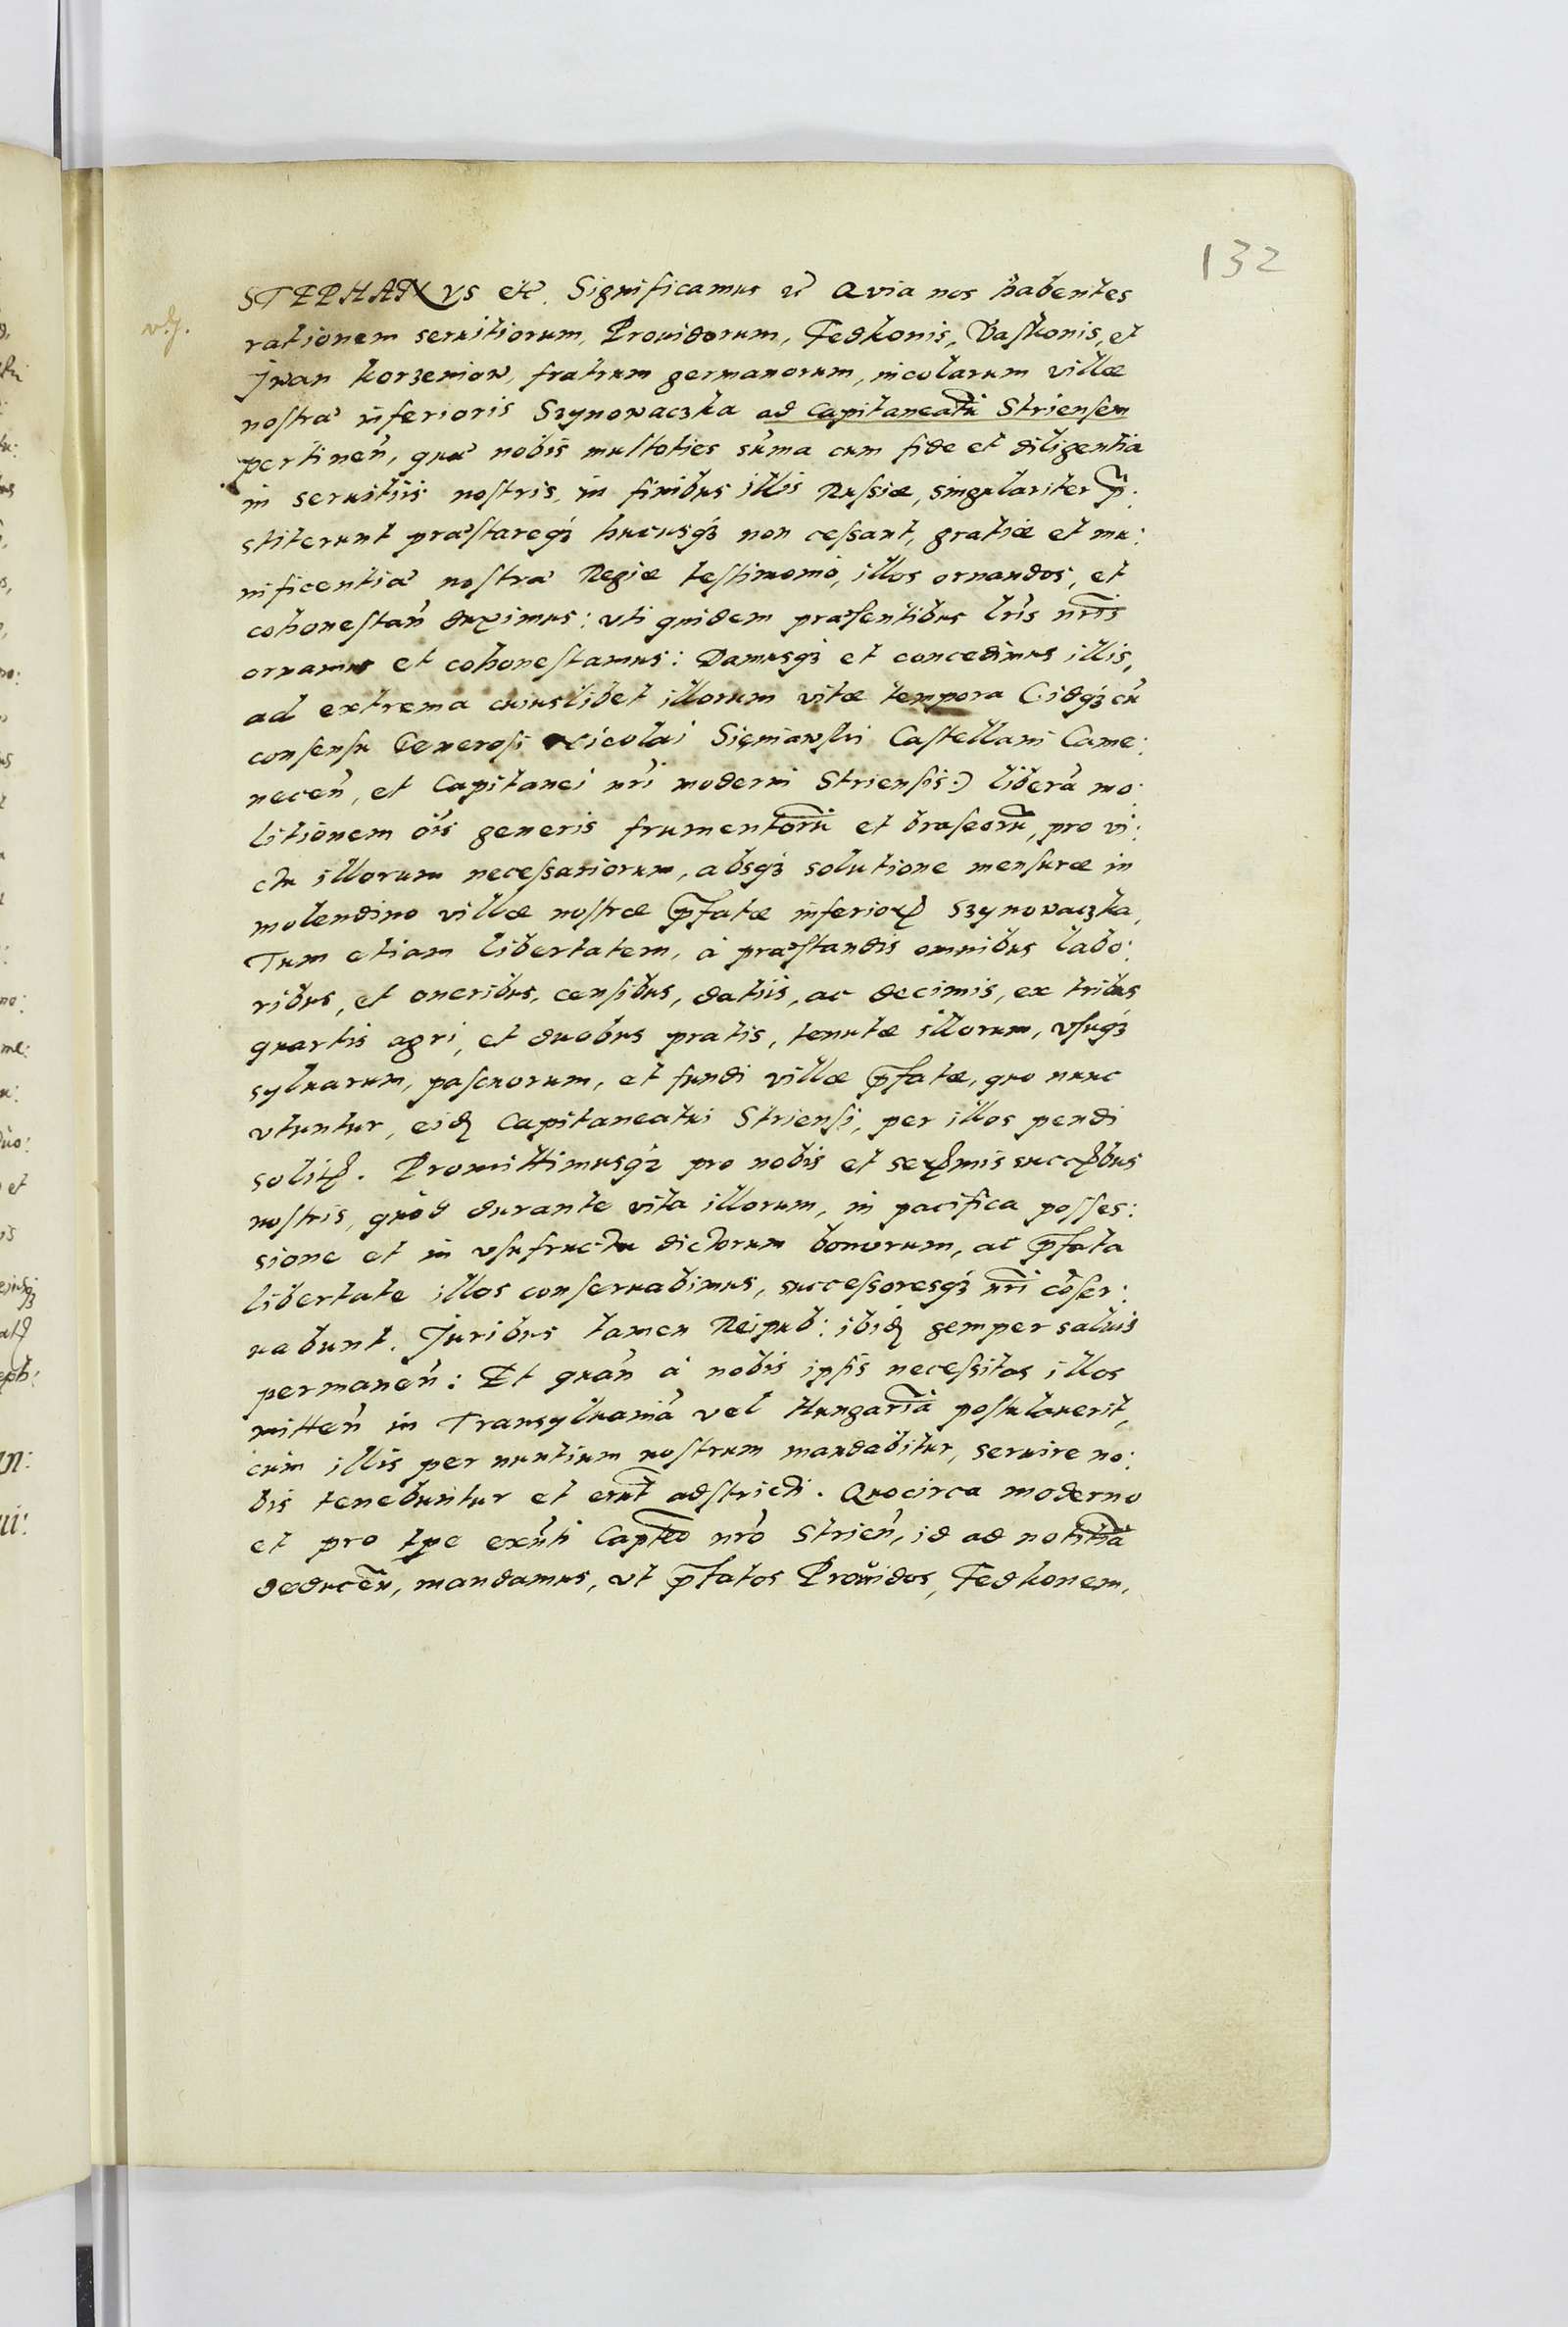 132
STEPHANVS etc. Significamus etc̃ Quia nos habentes
rationem seruitiorum, Prouidorum, Fedkonis, Vaskonis, et
Jwan Korzeniow, fratrum germanorum, incolarum villæ
nostræ inferioris Szynowaczka ad Capitaneatũ Striensem
pertineñ, quæ nobis multoties sũma cum fide et diligentia
in seruitiis nostris, in finibus illis Russiæ, singulariter p̃:
stiterunt præstareq₃ hucusq₃ non cessant, gratiæ et mu:
nificentiæ nostræ Regiæ testimonio, illos ornandos, et
cohonestañ duximus: vti quidem præsentibus lr̃is nr̃is
ornamus et cohonestamus: Damusq₃ et concedimus illis,
ad extrema cuiuslibet illorum vitæ tempora (idq₃ cũ
consensu Generosi Nicolai Sięniawski Castellani Came:
neceñ, et Capitanei nr̃i moderni Striensis:) liberã mo:
litionem oĩs generis frumentorũ et braseorũ, pro vi:
ctu illorum necessariorum, absq₃ solutione mensuræ in
molendino villæ nostræ p̃fatæ inferioꝝ Szynowaczka,
Tum etiam libertatem, à præstandis omnibus labo:
ribus, et oneribus, censibus, datiis, ac decimis, ex tribus
quartis agri, et duobus pratis, tenutæ illorum, vsuq₃
syluarum, pascuorum, et fundi villæ p̃fatæ, quo nunc
vtuntur, eidȩ Capitaneatui Striensi, per illos pendi
solitꝭ. Promittimusq₃ pro nobis et serꝭmis succꝭbus
nostris, quòd durante vita illorum, in pacifica posses:
sione et in vsufructu dictorum bonorum, ac p̃fata
libertate illos conseruabimus, successoresq₃ nr̃i cõser:
uabunt. Juribus tamen Reipub: ibidȩ semper saluis
permaneñ: Et quañ à nobis ipsis necessitas illos
mitteñ in Transyluaniã vel Hungariã postulauerit,
cum illis per nuntium nostrum mandabitur, seruire no:
bis tenebuntur et erũt adstricti. Quocirca moderno
et pro tp̃e exñti Capt̃eo nr̃o Strieñ, id ad notitiã
deduceñ, mandamus, vt p̃fatos Prouidos, Fedkonem,